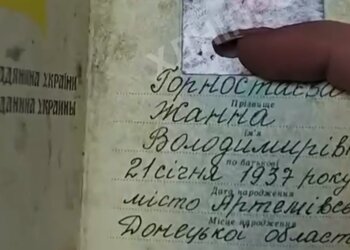 адянина України
данина Украины
Горностаєва
Прізвище
Жанна
ім'я
Володимирівн
по батькові
21 січня 1937 року
Дата народження
місто Артемівсь
Місце народження
Донецької област